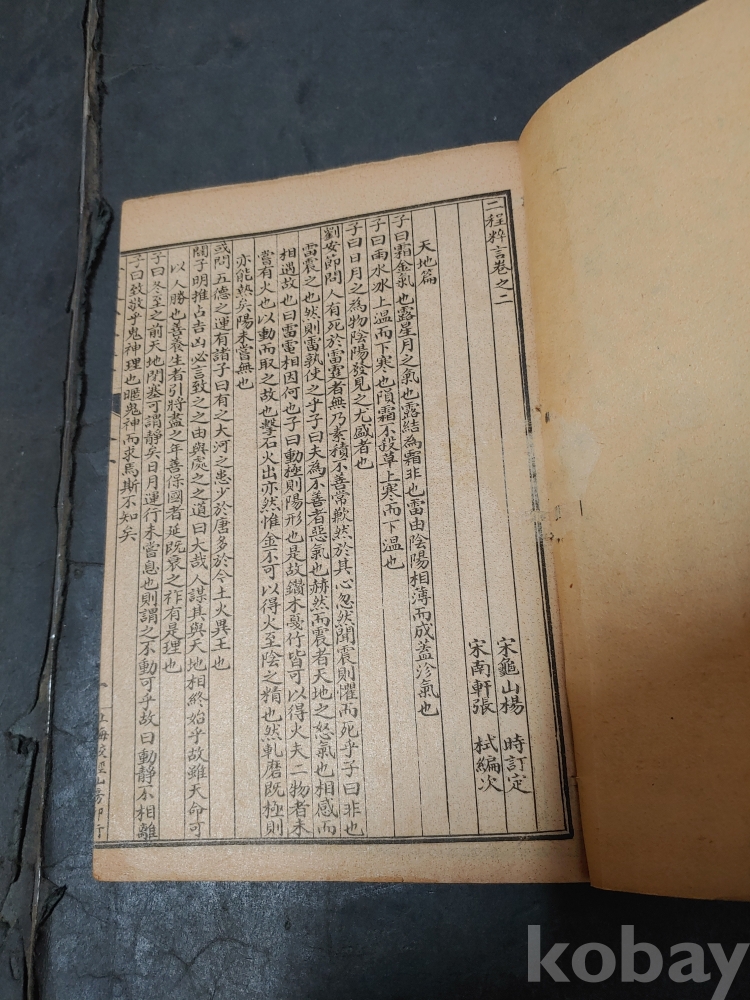 二程粹言卷之二
宋龜山楊 時訂定
宋南軒張 栻編次
天地篇
子曰霜金氣也露星月之氣也露結為霜非也雷由陰陽相薄而成蓋沴氣也
子曰雨水冰上温而下寒也隕霜不殺草上寒而下温也
子曰日月之為物陰陽發見之尤盛者也
劉安節問人有死於雷霆者無乃素積不善常歉然於其心忽然聞震則懼而死乎子曰非也
雷震之也然則雷孰使之乎子曰夫為不善者惡氣也赫然而震者天地之怒氣也相感而
相遇故也曰雷電相因何也子曰動極則陽形也是故鑽木戛竹皆可以得火夫二物者未
嘗有火也以動而取之故也擊石火出亦然惟金不可以得火至陰之精也然軋磨既極則
亦能熱矣陽未嘗無也
或問五德之運有諸子曰有之大河之患少於唐多於今土火異王也
關子明推占吉凶必言致之之由與處之之道曰大哉人謀其與天地相終始乎故雖天命可
以人勝也善養生者引將盡之年善保國者延既衰之祚有是理也
子曰冬至之前天地閉塞可謂靜矣日月運行未嘗息也則謂之不動可乎故曰動靜不相離
子曰致敬乎鬼神理也暱鬼神而求焉斯不知矣
上海校經山房印行
kobay